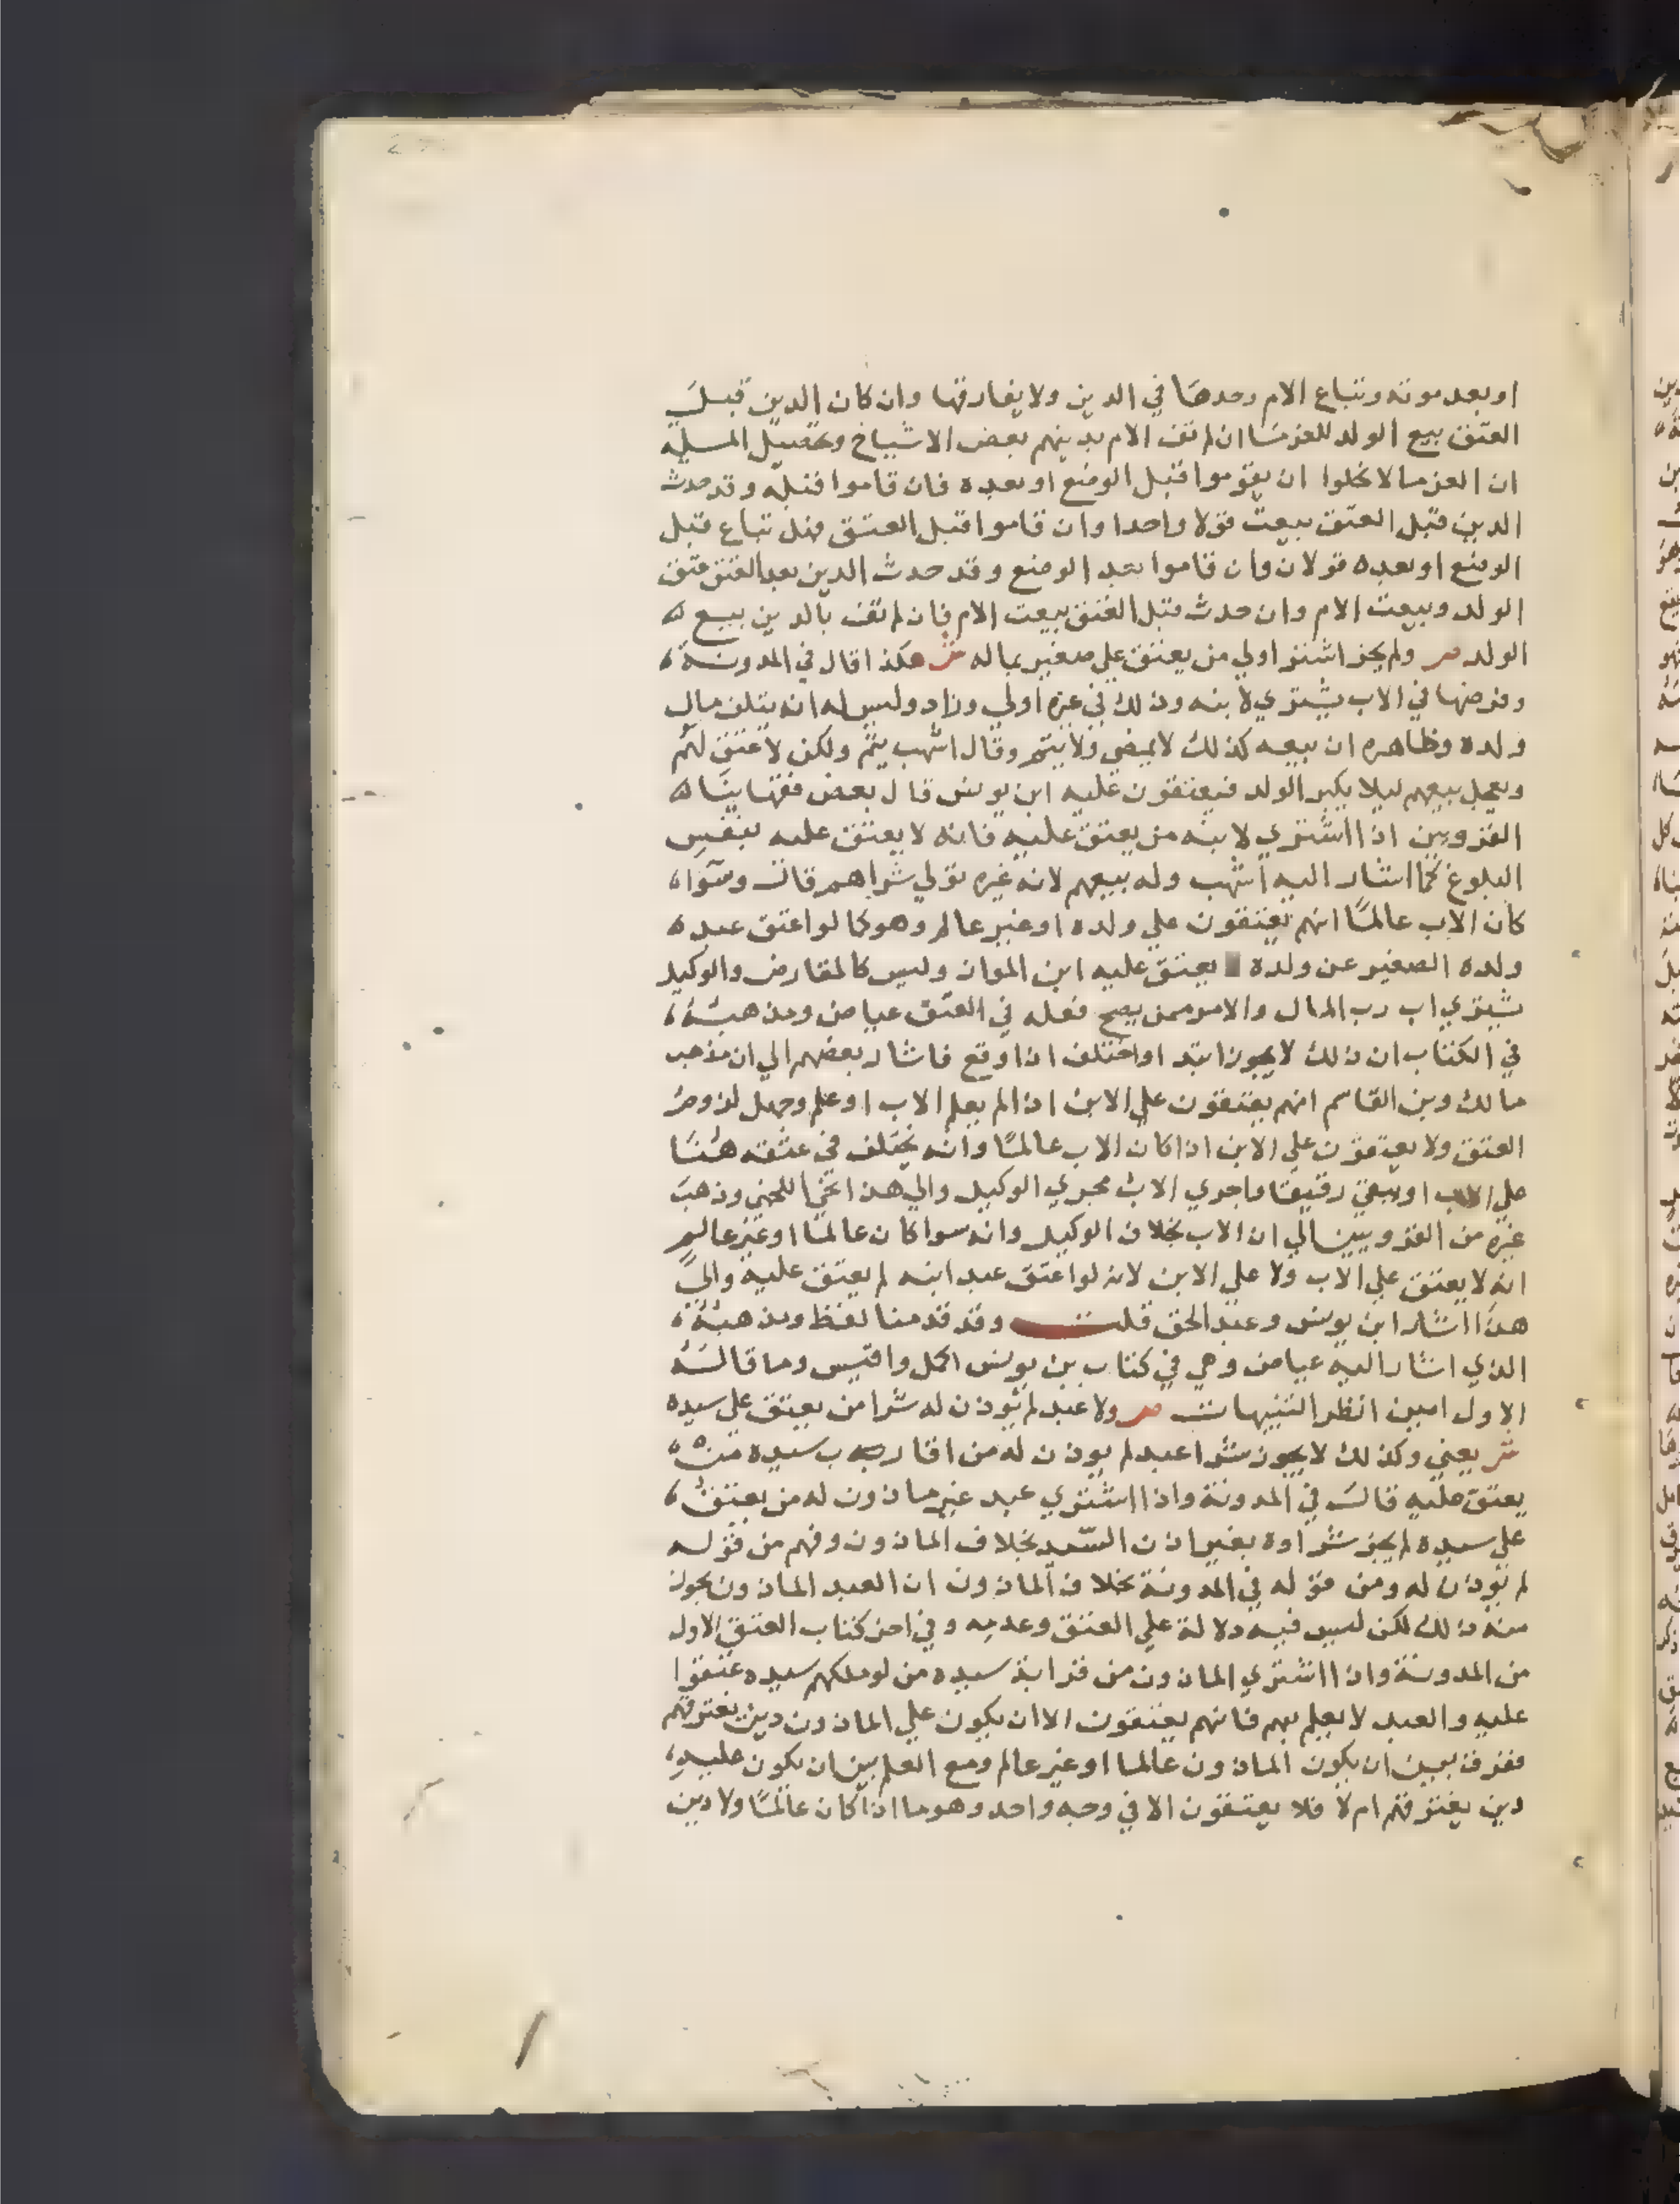 او بعد موته وتباع الام وحدها في الدين ولا يفارقها وان كان الدين قبل
العتق بيع الولد للغرما ان لم تف الام بدينهم بعض الاشياخ وتحصيل المسيله
ان الغرما لا يخلوا ان يقوموا قبل الوضع او بعده فان قاموا قبله وقد حدث
الدين قبل العتق بيعت قولا واحدا وان قاموا قبل العتق فهل تباع قبل
الوضع او بعده قولان وان قاموا بعد الوضع وقد حدث الدين بعد العتق عتق
الولد وبيعت الام وان حدث قبل العتق بيعت الام فان لم تف بالدين بيع
الولد ص ولم يجز اشترا ولي من يعتق علي صغير بماله ش هكذا قال في المدونة
وفرضها في الاب يشتري لابنه وذلك في غيره اولي وزاد وليس له ان يتلف مال
ولده وظاهره ان بيعه كذلك لا يمضي ولا يتم وقال اشهب يتم ولكن لا عتق لهم
ويعجل بيعهم ليلا يكبر الولد فيعتقون عليه ابن يونس قال بعض فقهاينا
القرويين اذا اشتري لابنه من يعتق عليه فانه لا يعتق عليه بنفس
البلوغ كما اشار اليه اشهب وله بيعهم لانه غيره تولي شراهم قال وسوا
كان الاب عالما انهم يعتقون علي ولده او غير عالم وهو كما لو اعتق عبده
ولده الصغير عن ولده يعتق عليه ابن المواز وليس كالمقارض والوكيل
يشتري اب رب المال والامر ممن يصح فعله في العتق عياض ومذهبه
في الكتاب ان ذلك لا يجوز ابتدا واختلف اذا وقع فاشار بعضهم الي ان مذهب
مالك وبن القاسم انهم يعتقون علي الابن اذا لم يعلم الاب او علم وجهل لزوم
العتق ولا يعتقون علي الابن اذا كان الاب عالما وانه يختلف في عتقه هنا
علي الاب او يبقي رقيقا واجري الاب مجري الوكيل والي هذا نحي اللخمي وذهب
غيره من القرويين الي ان الاب بخلاف الوكيل وانه سوا كان عالما او غير عالم
انه لا يعتق علي الاب ولا علي الابن لانه لو اعتق عبد ابنه لم يعتق عليه والي
هذا اشار ابن يونس وعبد الحق قلت وقد قدمنا لفظ ومذهبه
الذي اشار اليه عياض وهي في كتاب بن يونس اكمل واقيس وما قاله
الاول امين انظر التنبيهات ص ولا عبد لم يوذن له شرا من يعتق علي سيده
ش يعني وكذلك لا يجوز شرا عبد لم يوذن له من اقارب سيده من
يعتق عليه قال في المدونة واذا اشتري عبد غير ماذون له من يعتق
علي سيده لم يجز شراوه بغير اذن السيد بخلاف الماذون وفهم من قوله
لم يوذن له ومن قوله في المدونة بخلاف الماذون ان العبد الماذون يجوز
منه ذلك لكن ليس فيه دلالة علي العتق وعدمه وفي اخر كتاب العتق الاول
من المدونة واذا اشتري الماذون من قرابة سيده من لو ملكهم سيده عتقوا
عليه والعبد لا يعلم بهم فانهم يعتقون الا ان يكون علي الماذون دين يغترقهم
ففرق بين ان يكون الماذون عالما او غير عالم ومع العلم بين ان يكون عليه
دين يغترقهم ام لا فلا يعتقون الا في وجه واحد وهو ما اذا كان عالما ولا دين